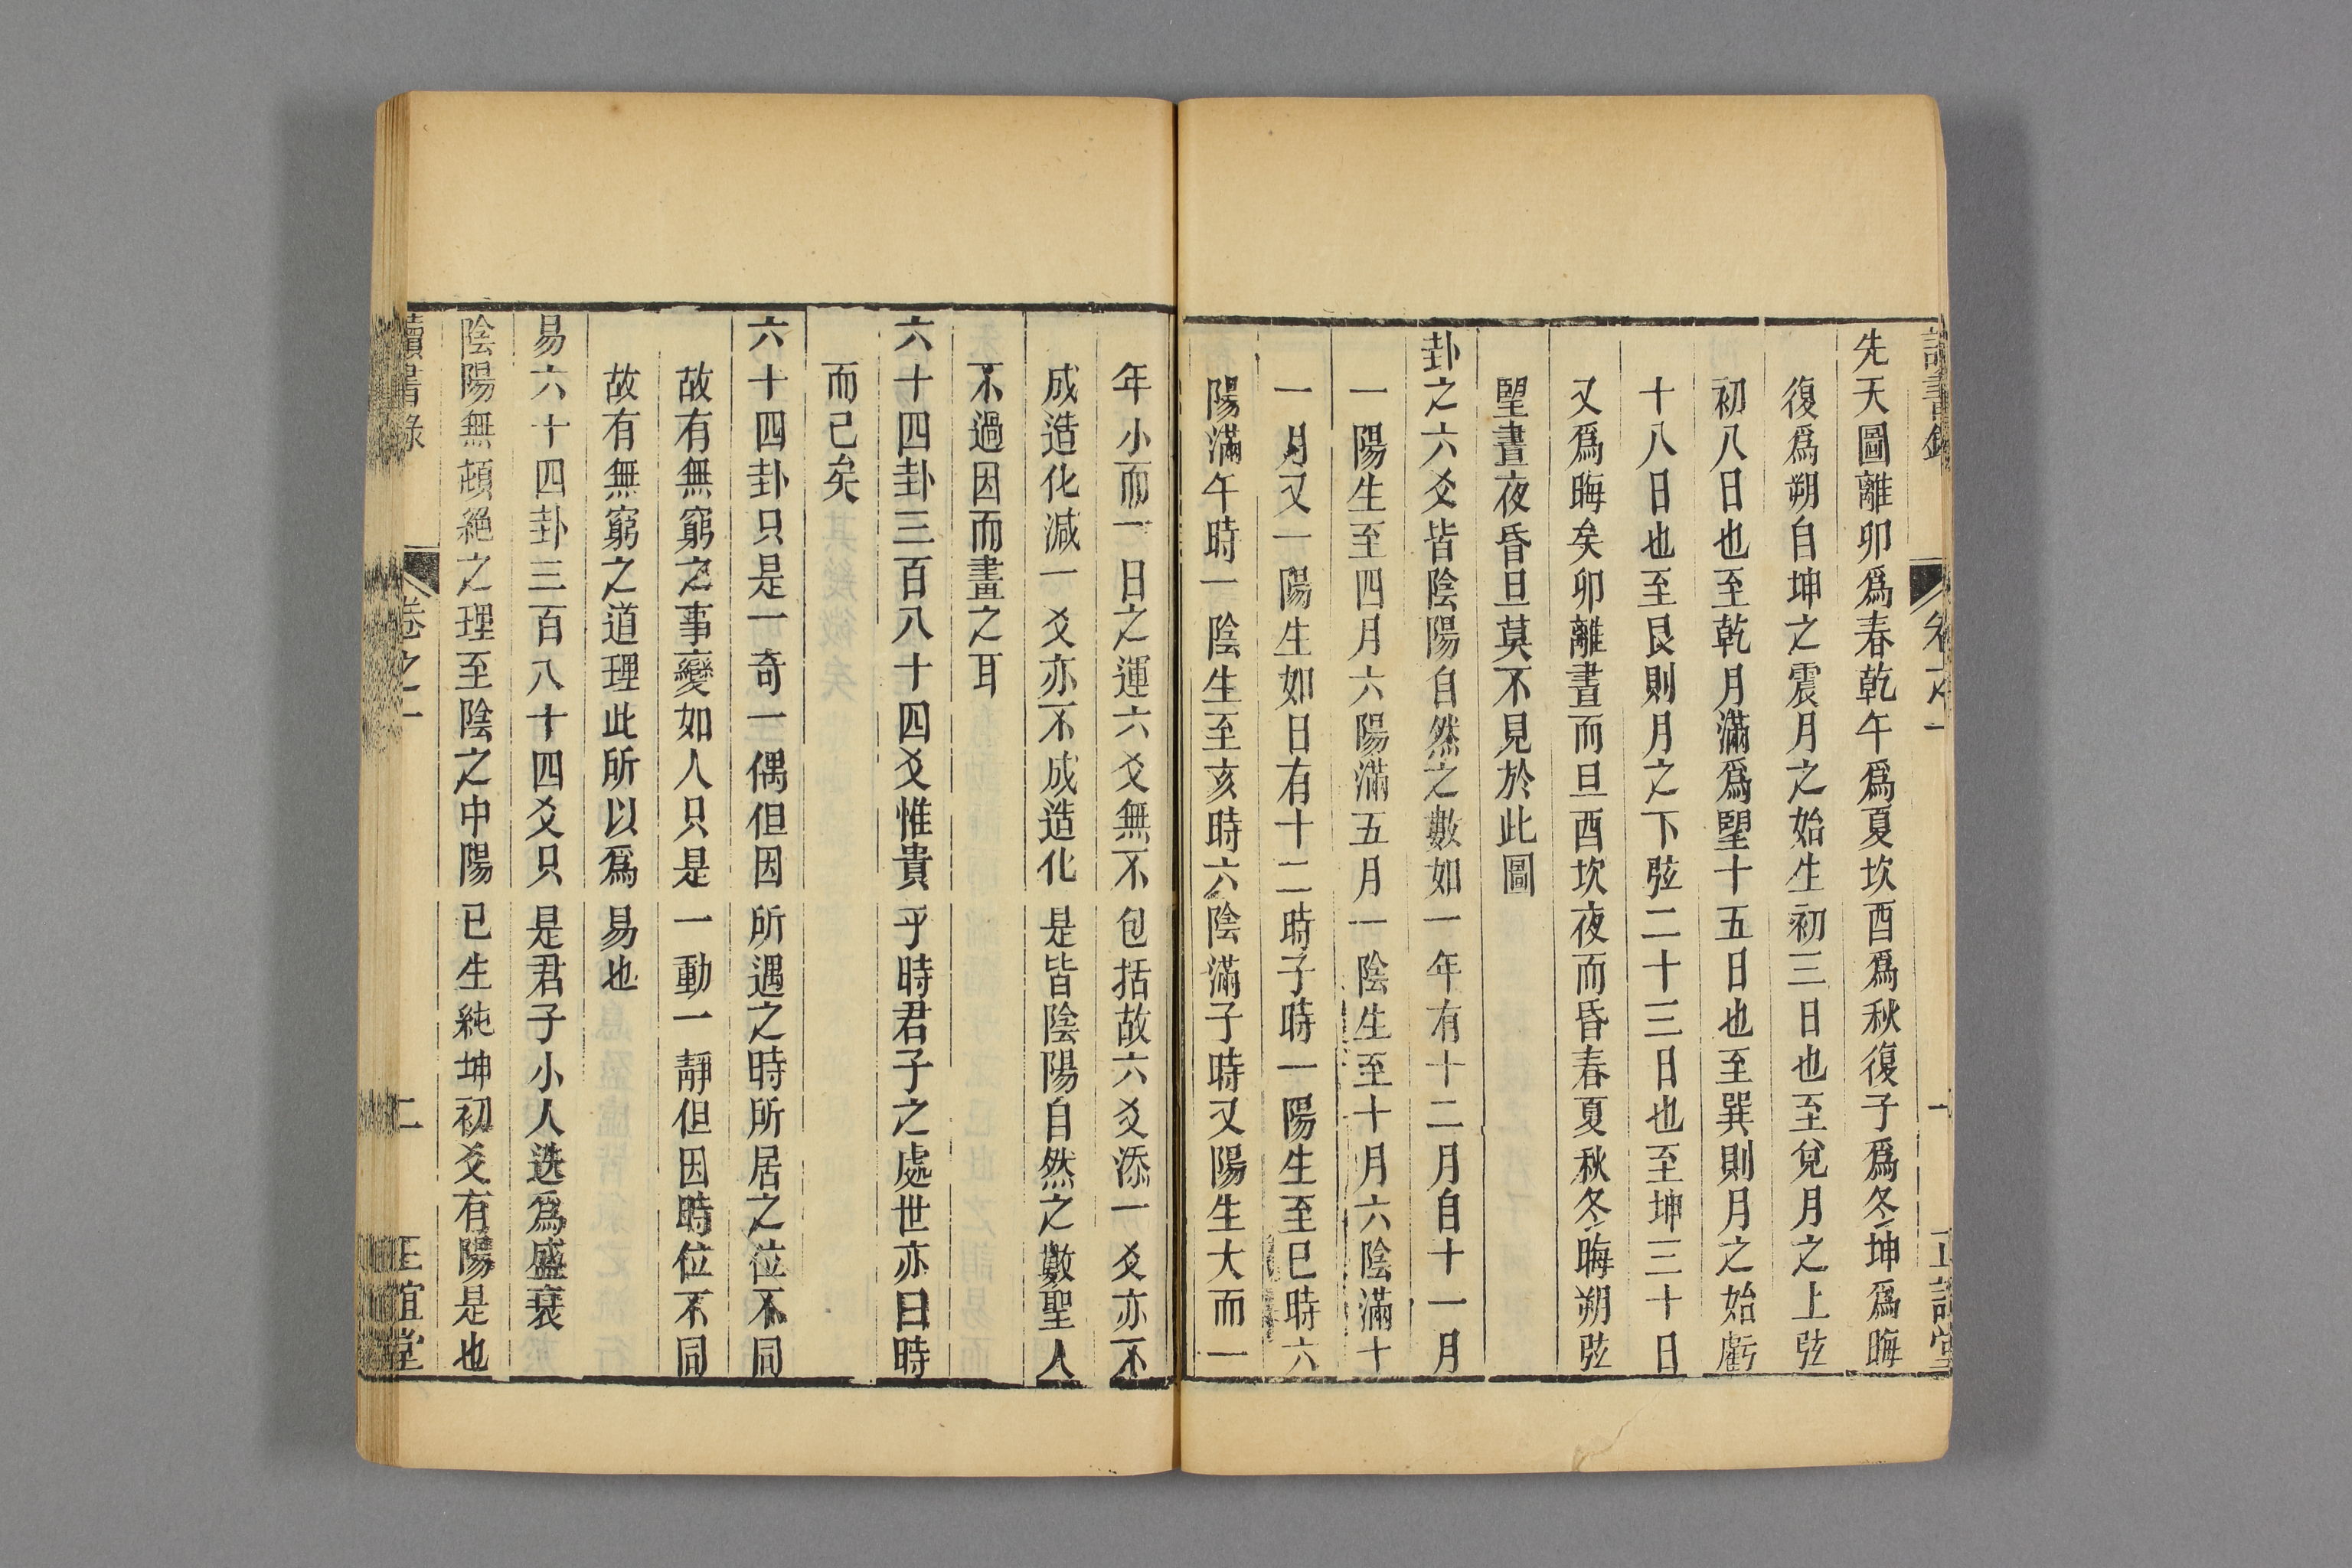 讀書錄 卷之一 一 正誼堂
先天圖離卯爲春乾午爲夏坎酉爲秋復子爲冬坤爲晦
復爲朔自坤之震月之始生初三日也至兌月之上弦
初八日也至乾月滿爲朢十五日也至巽則月之始虧
十八日也至艮則月之下弦二十三日也至坤三十日
又爲晦矣卯離晝而旦酉坎夜而昏春夏秋冬晦朔弦
朢晝夜昏旦莫不見於此圖
卦之六爻皆陰陽自然之數如一年有十二月自十一月
一陽生至四月六陽滿五月一陰生至十月六陰滿十
一月又一陽生如日有十二時子時一陽生至巳時六
陽滿午時一陰生至亥時六陰滿子時又陽生大而一
年小而一日之運六爻無不包括故六爻添一爻亦不
成造化減一爻亦不成造化是皆陰陽自然之數聖人
不過因而畫之耳
六十四卦三百八十四爻惟貴乎時君子之處世亦曰時
而已矣
六十四卦只是一奇一偶但因所遇之時所居之位不同
故有無窮之事變如人只是一動一靜但因時位不同
故有無窮之道理此所以爲易也
易六十四卦三百八十四爻只是君子小人迭爲盛衰
陰陽無頓絕之理至陰之中陽已生純坤初爻有陽是也
讀書錄 卷之一 二 正誼堂